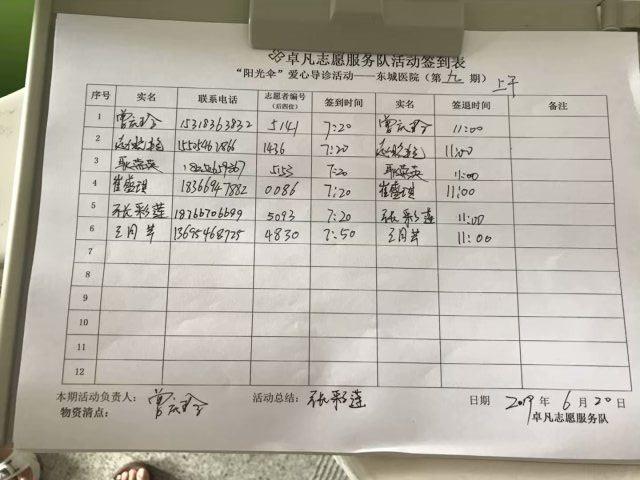 卓凡志愿服务队活动签到表
“阳光伞”爱心导诊活动——东城医院（第 九 期） 上午
序号 实名 联系电话 志愿者编号（后四位） 签到时间 实名 签退时间 备注
1 15318363832 5141 7:20 11:00
2 1436 7:20 11:00
3 5153 7:20 11:00
4 18366947882 0086 7:20 11:00
5 张彩莲 18766706699 5093 7:20 张彩莲 11:00
6 13695468725 4830 7:50 11:00
7
8
9
10
11
12
本期活动负责人： 活动总结： 张彩莲 日期 2019 年 6 月 20 日
物资清点： 卓凡志愿服务队